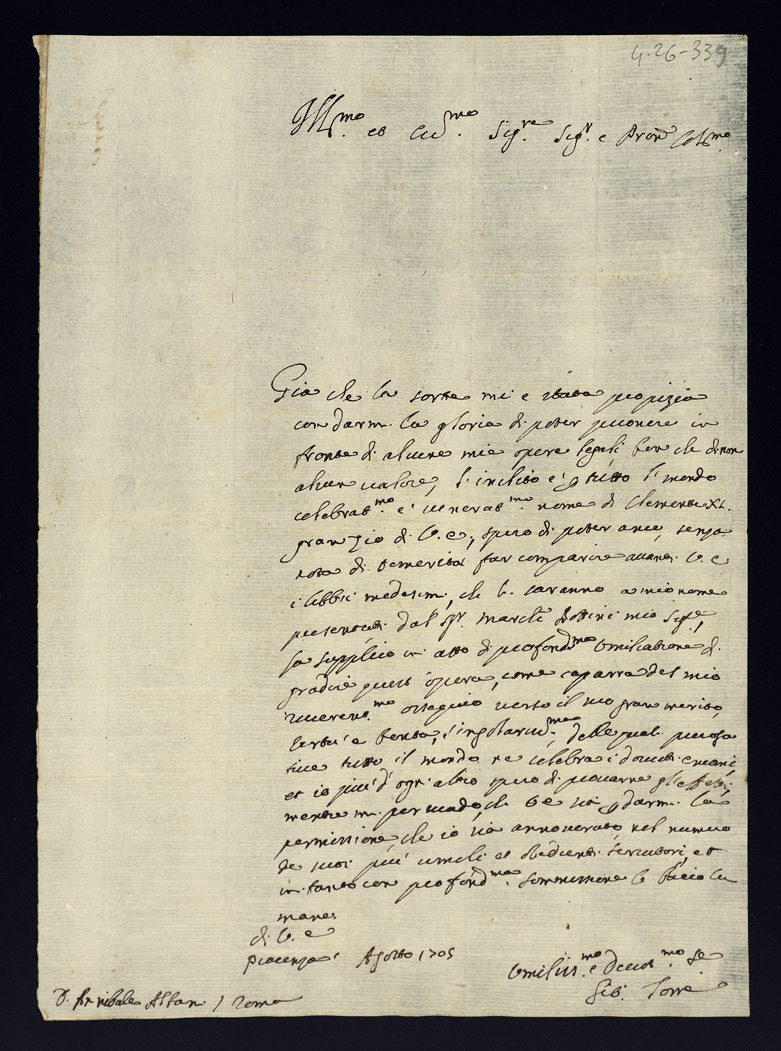 4-26-339
Ill.mo et Ecc.mo Sig.re Sig.r e Pron Col.mo
Gia che la sorte mi e stata propizia
con darmi la gloria di poter porre in
fronte di alcune mie opere legali ben che di non
alcun valore, l'inclito e p tutto l'mondo
celebrat.mo e venerat.mo nome di Clemente XI.
gran Zio di V. e., spero di poter anco, senza
nota di demerito far comparire avanti V. e
i libbri medesimi, che li saranno a mio nome
presentati dal Sig.r March mio Sig.re,
la supplico in atto di profond.ma Umiliatione di
gradire quest'opera, come caparra del mio
riveren.mo ossequio verso il suo gran merito,
virtu' e bonta, singolaris.me delle quali
tutto il mondo ne celebra i dovuti
et io piu' d'ogn altro spero di provarne gl'effetti,
mentre mi persuado, che V e sia p darmi la
permissione, che io sia annoverato nel numero
de suoi piu' umili et obedienti servitori, et
in tanto con profond.ma sommissione le bacio le
mani.
di V. e
Piacenza Agosto 1705
Umiliss.mo e Devot.mo Se
Gio. Torre
D. Annibale Albani / Roma